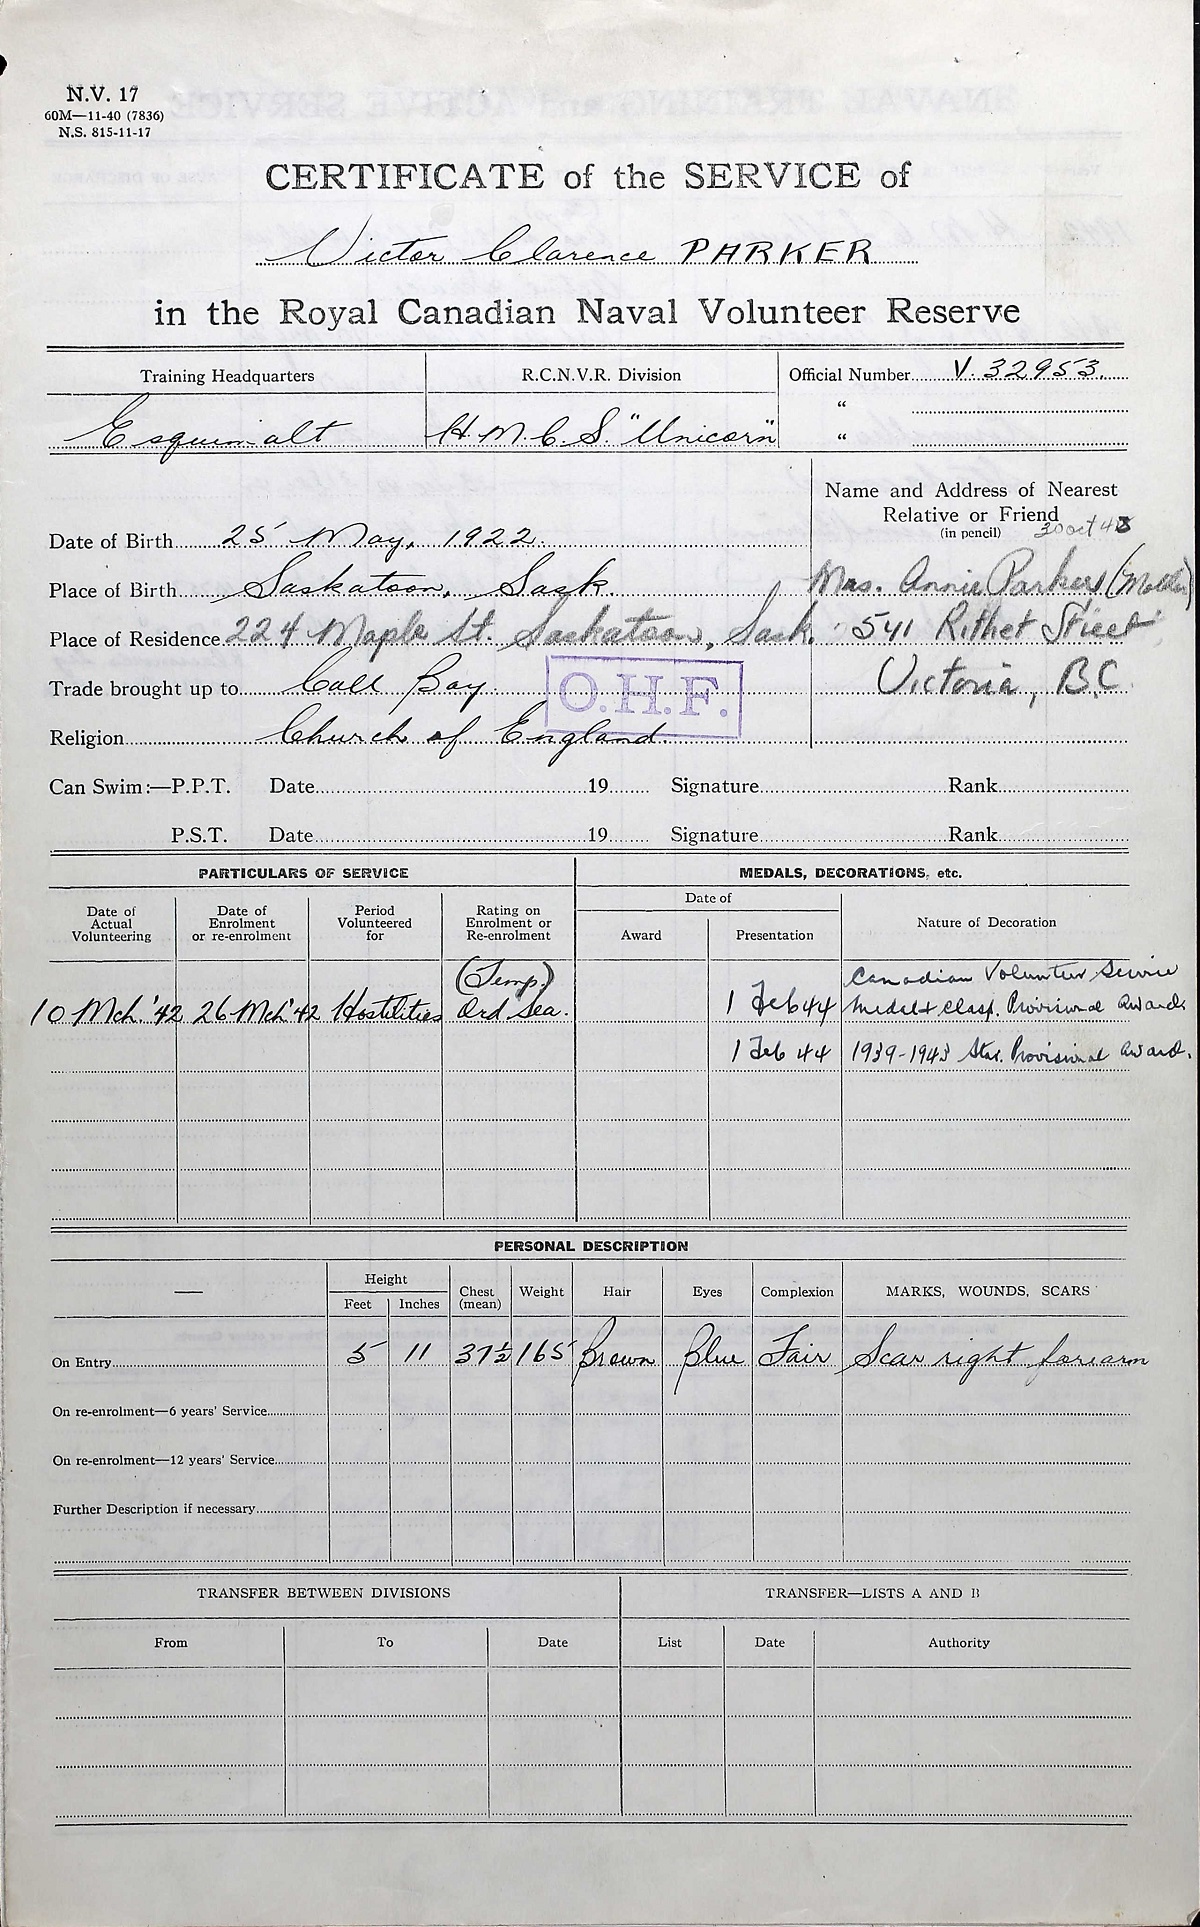 N.V. 17
60M—11-40 (7836)
N.S. 815-11-17
CERTIFICATE of the SERVICE of
Victor Clarence PARKER
in the Royal Canadian Naval Volunteer Reserve
Training Headquarters R.C.N.V.R. Division Official Number V. 32953.
"
Esquimalt H.M.C.S. "Unicorn" "
Name and Address of Nearest
Relative or Friend
(in pencil) 30 Oct 43
Date of Birth 25 May, 1922.
Place of Birth Saskatoon, Sask. Mrs. Annie Parker (Mother)
Place of Residence 224 Maple St. Saskatoon, Sask. 541 Rithet Street
Trade brought up to Call Boy Victoria, B.C.
O.H.F.
Religion Church of England.
Can Swim:—P.P.T. Date 19 Signature Rank
P.S.T. Date 19 Signature Rank
PARTICULARS OF SERVICE MEDALS, DECORATIONS, etc.
Date of Actual Volunteering Date of Enrolment or re-enrolment Period Volunteered for Rating on Enrolment or Re-enrolment Date of Nature of Decoration
Award Presentation
(Temp) Canadian Volunteer Service
10 Mch '42 26 Mch '42 Hostilities Ord Sea. 1 Feb 44 Medal & Clasp. Provisional Award.
1 Feb 44 1939-1943 Star. Provisional Award.
PERSONAL DESCRIPTION
— Height Chest (mean) Weight Hair Eyes Complexion MARKS, WOUNDS, SCARS
Feet Inches
On Entry 5 11 37½ 165 Brown Blue Fair Scar right forearm
On re-enrolment—6 years' Service
On re-enrolment—12 years' Service
Further Description if necessary
TRANSFER BETWEEN DIVISIONS TRANSFER—LISTS A AND B
From To Date List Date Authority